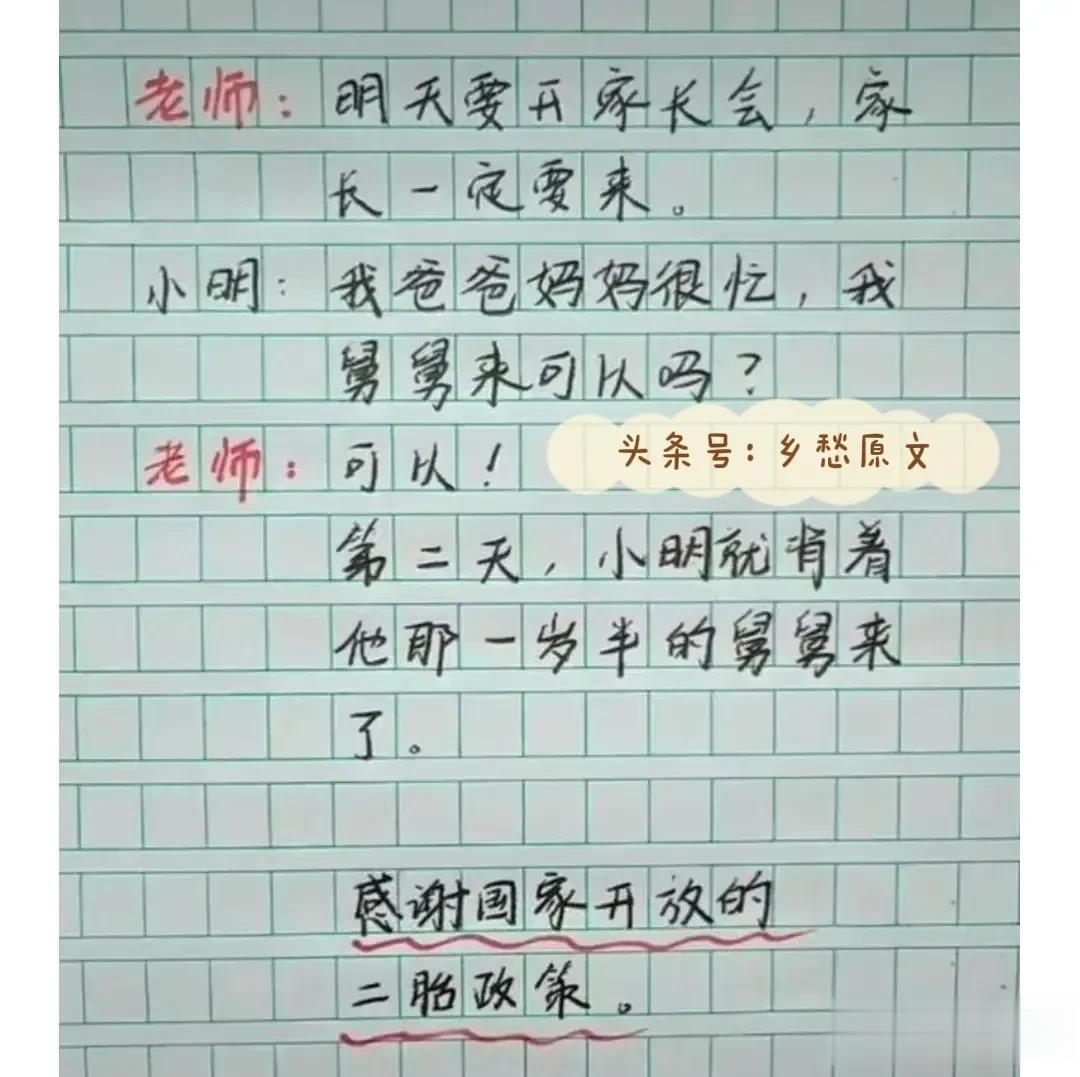 老师：明天要开家长会，家
长一定要来。
小明：我爸爸妈妈很忙，我
舅舅来可以吗？
老师：可以！
头条号:乡愁原文
第二天，小明就背着
他那一岁半的舅舅来
了。
感谢国家开放的
二胎政策。